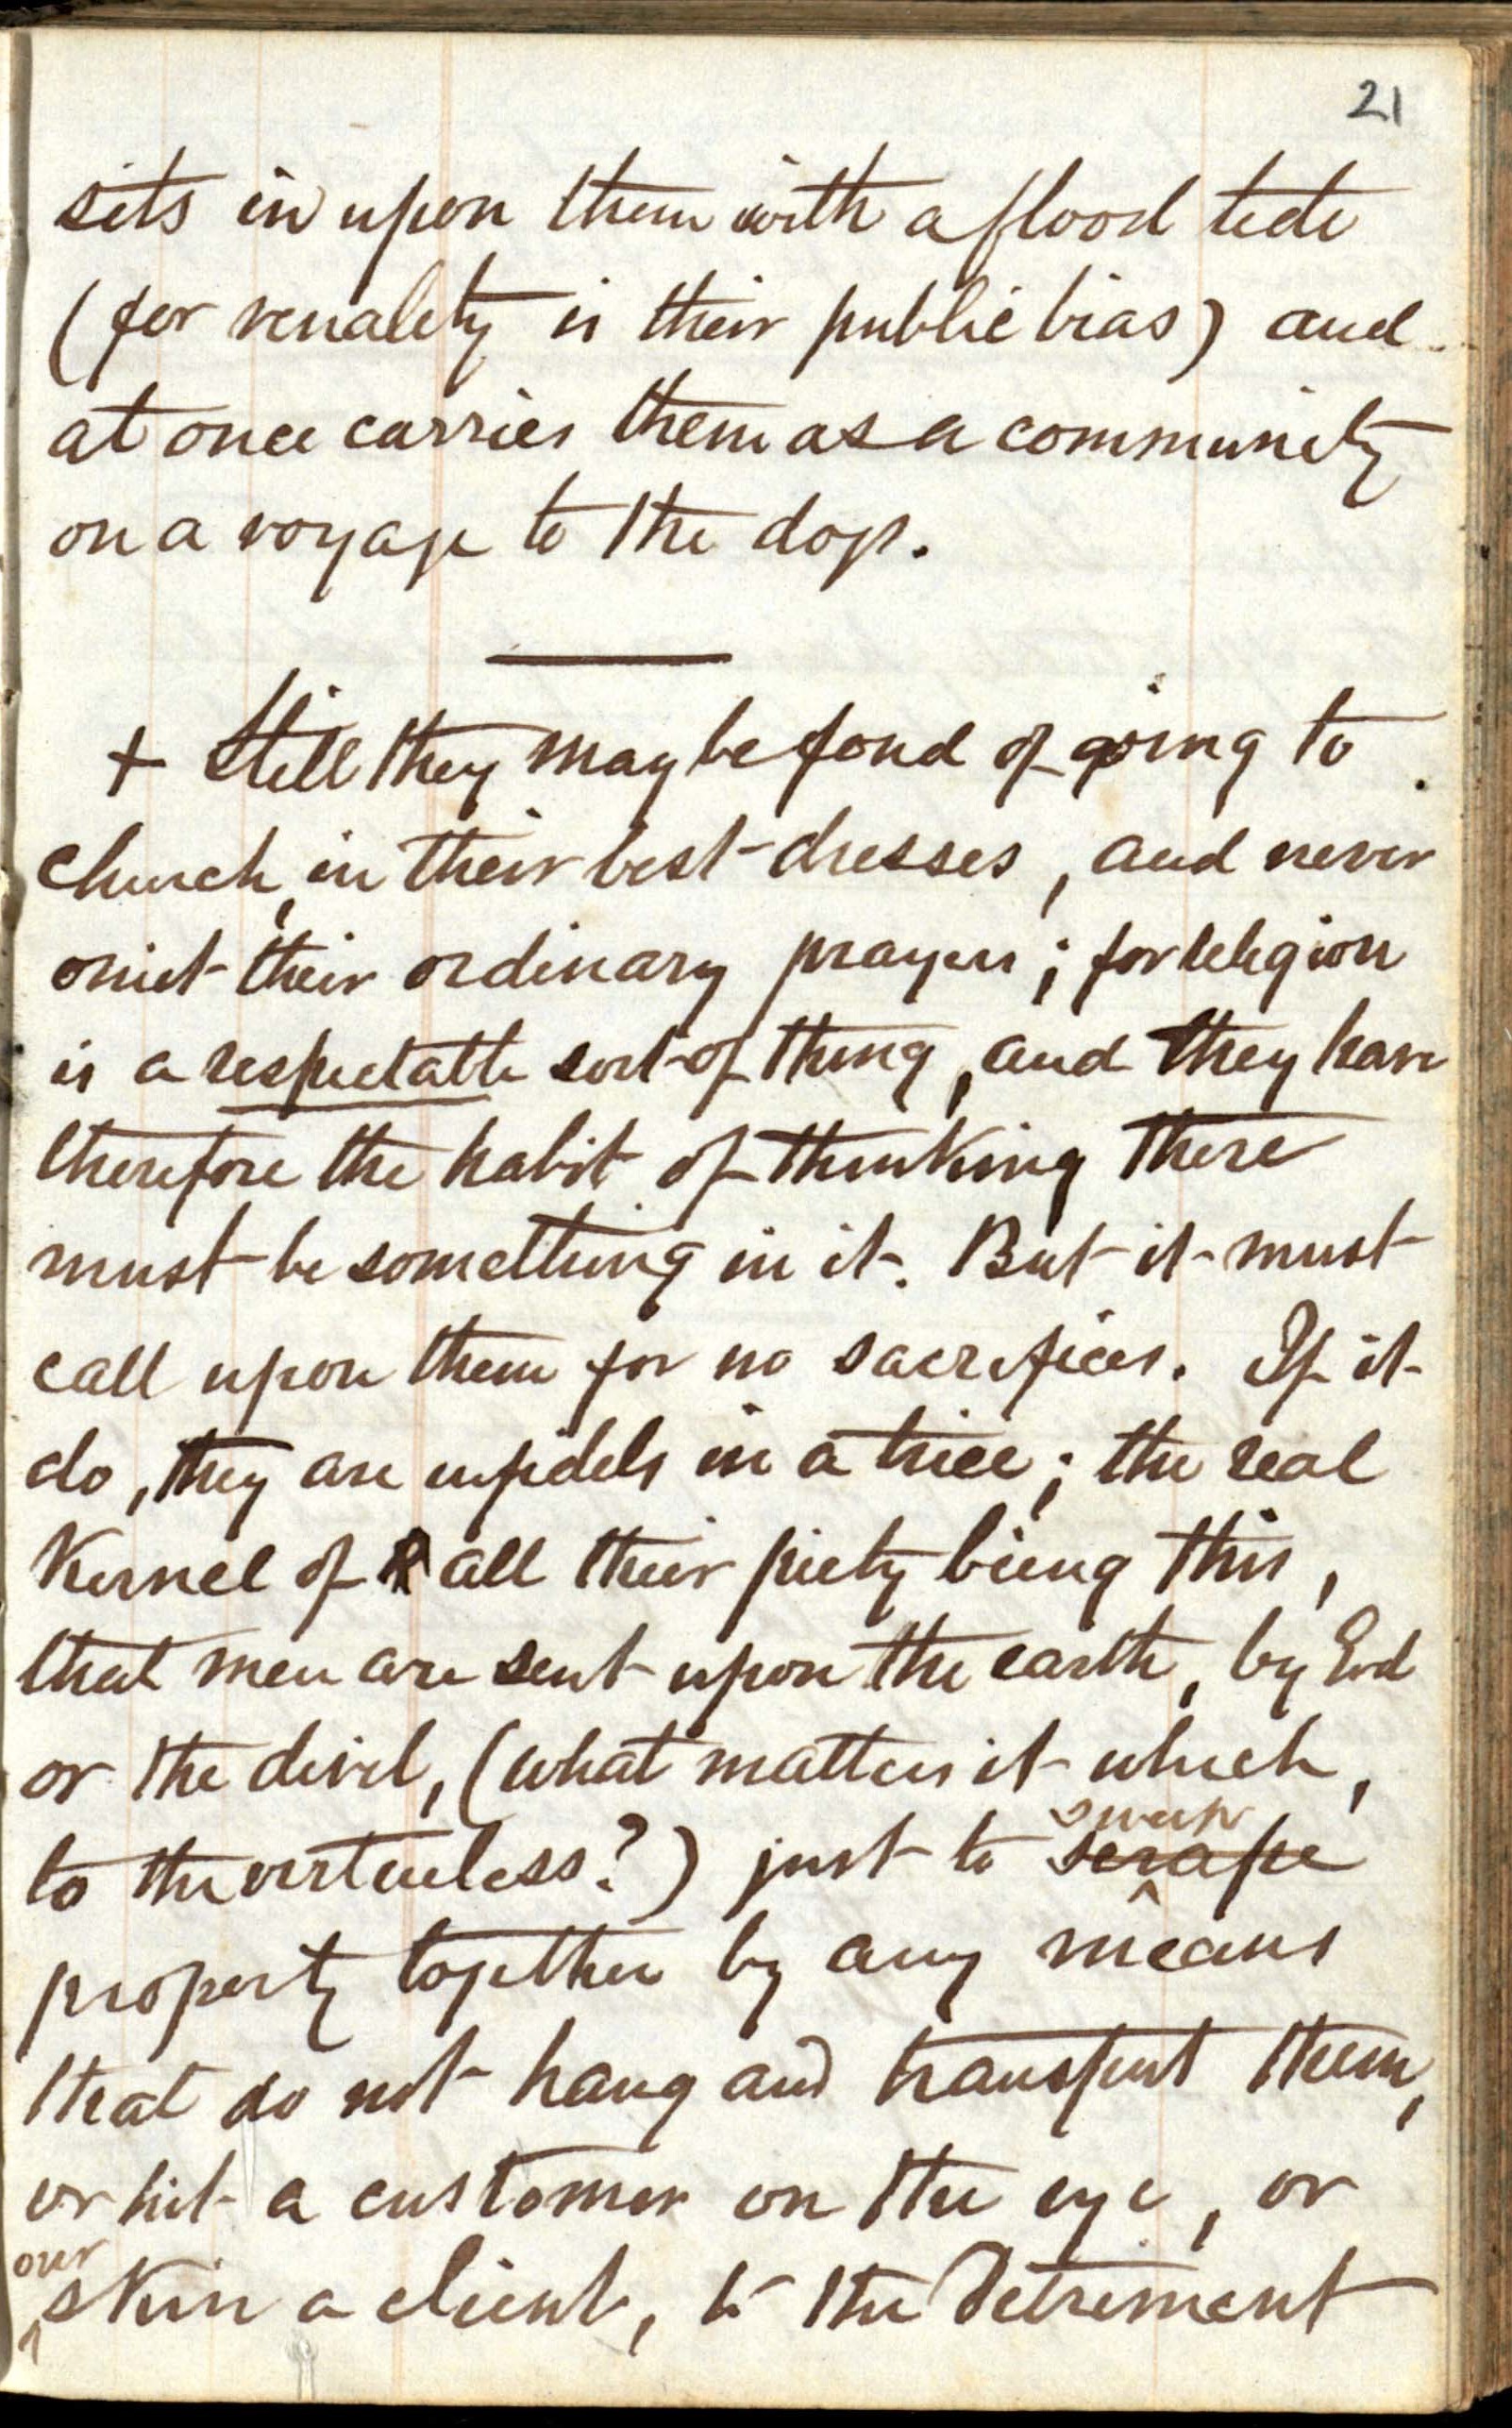 21
sets in upon them with a flood tide
(for venality is their public bias) and
at once carries them as a community
on a voyage to the dogs.
+ Still they may be fond of going to
church, in their best dresses, and never
omit their ordinary prayers; for religion
is a respectable sort of thing, and they have
therefore the habit of thinking there
must be something in it. But it must
call upon them for no sacrifices. If it
do, they are infidels in a trice; the real
kernel of all their piety being this,
that men are sent upon the earth, by God
or the devil, (what matters it which,
to the virtueless?) just to scrape
property together by any means
that do not hang and transport them,
or hit a customer on the eye, or
our
skin a client, to the detriment